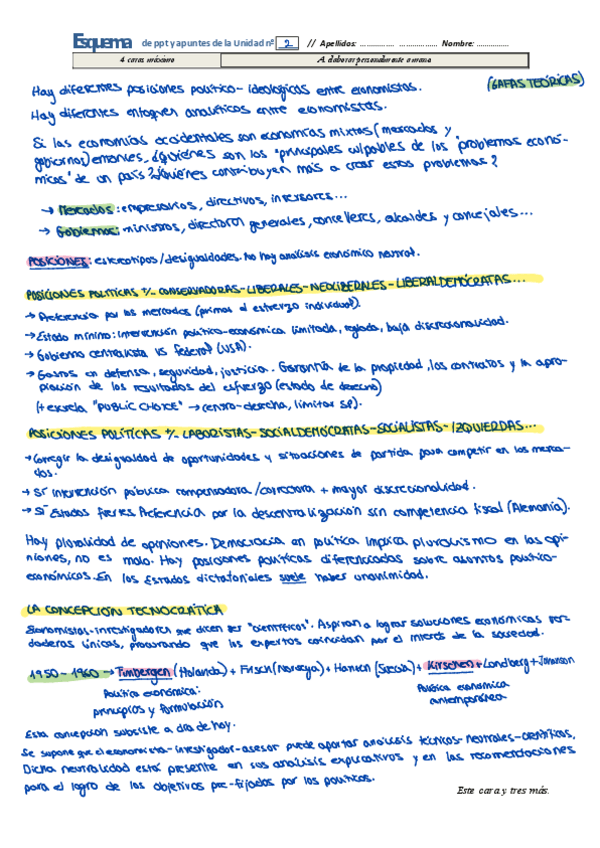 Esquema de ppt y apuntes de la Unidad nº 2 // Apellidos: ................ .................. Nombre: ...............
4 caras máximo A elaborar personalmente a mano
Hay diferentes posiciones político-ideológicas entre economistas. (GAFAS TEÓRICAS)
Hay diferentes enfoques analíticos entre economistas.
Si las economías occidentales son economías mixtas (mercados y
gobiernos) errores, ¿quiénes son los "principales culpables de los "problemas econó-
micos" de un país? ¿Quiénes contribuyen más a crear estos problemas?
→ Mercados: empresarios, directivos, inversores...
→ Gobiernos: ministros, directores generales, conselleres, alcaldes y concejales...
POSICIONES: estereotipos/desigualdades. No hay análisis económico neutral.
POSICIONES POLÍTICAS +/- CONSERVADORAS-LIBERALES-NEOLIBERALES-LIBERALDEMÓCRATAS...
→ Preferencia por los mercados (primas al esfuerzo individual).
→ Estado mínimo: intervención político-económica limitada, reglada, baja discrecionalidad.
→ Gobierno centralista vs federal (USA).
→ Gastos en defensa, seguridad, justicia. Garantía de la propiedad, los contratos y la apro-
piación de los resultados del esfuerzo (estado de derecho)
(+ escuela "PUBLIC CHOICE" → centro-derecha, limitar SP).
POSICIONES POLÍTICAS +/- LABORISTAS-SOCIALDEMÓCRATAS-SOCIALISTAS-IZQUIERDAS...
→ Corregir la desigualdad de oportunidades y situaciones de partida para competir en los merca-
dos.
→ Sí intervención pública compensadora/correctora + mayor discrecionalidad.
→ Sí Estados fuertes. Preferencia por la descentralización sin competencia fiscal (Alemania).
Hay pluralidad de opiniones. Democracia en política implica pluralismo en las opi-
niones, no es malo. Hay posiciones políticas diferenciadas sobre asuntos político-
económicos. En los Estados dictatoriales suele haber unanimidad.
LA CONCEPCIÓN TECNOCRÁTICA
Economistas-investigadores que dicen ser "científicos". Aspiran a lograr soluciones económicas ver-
daderas únicas, procurando que los expertos coincidan por el interés de la sociedad.
1950-1960 → Tinbergen (Holanda) + Frisch (Noruega) + Hansen (Suecia) + Kirschen + Lundberg + Johansen
Política económica: Política económica
principios y formulación contemporánea
Esta concepción subsiste a día de hoy.
Se supone que el economista-investigador-asesor puede aportar análisis técnicos-neutrales-científicos,
Dicha neutralidad estará presente en sus análisis explicativos y en las recomendaciones
para el logro de los objetivos pre-fijados por los políticos.
Este cara y tres más.